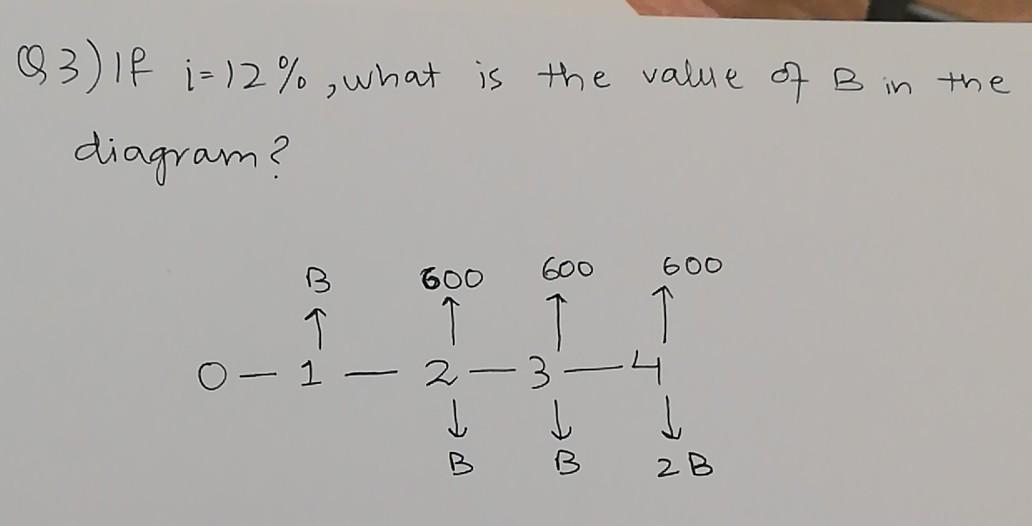 Q3) If i=12%, what is the value of B in the
diagram?
B 600 600 600
0 — 1 — 2 — 3 — 4
B B 2B